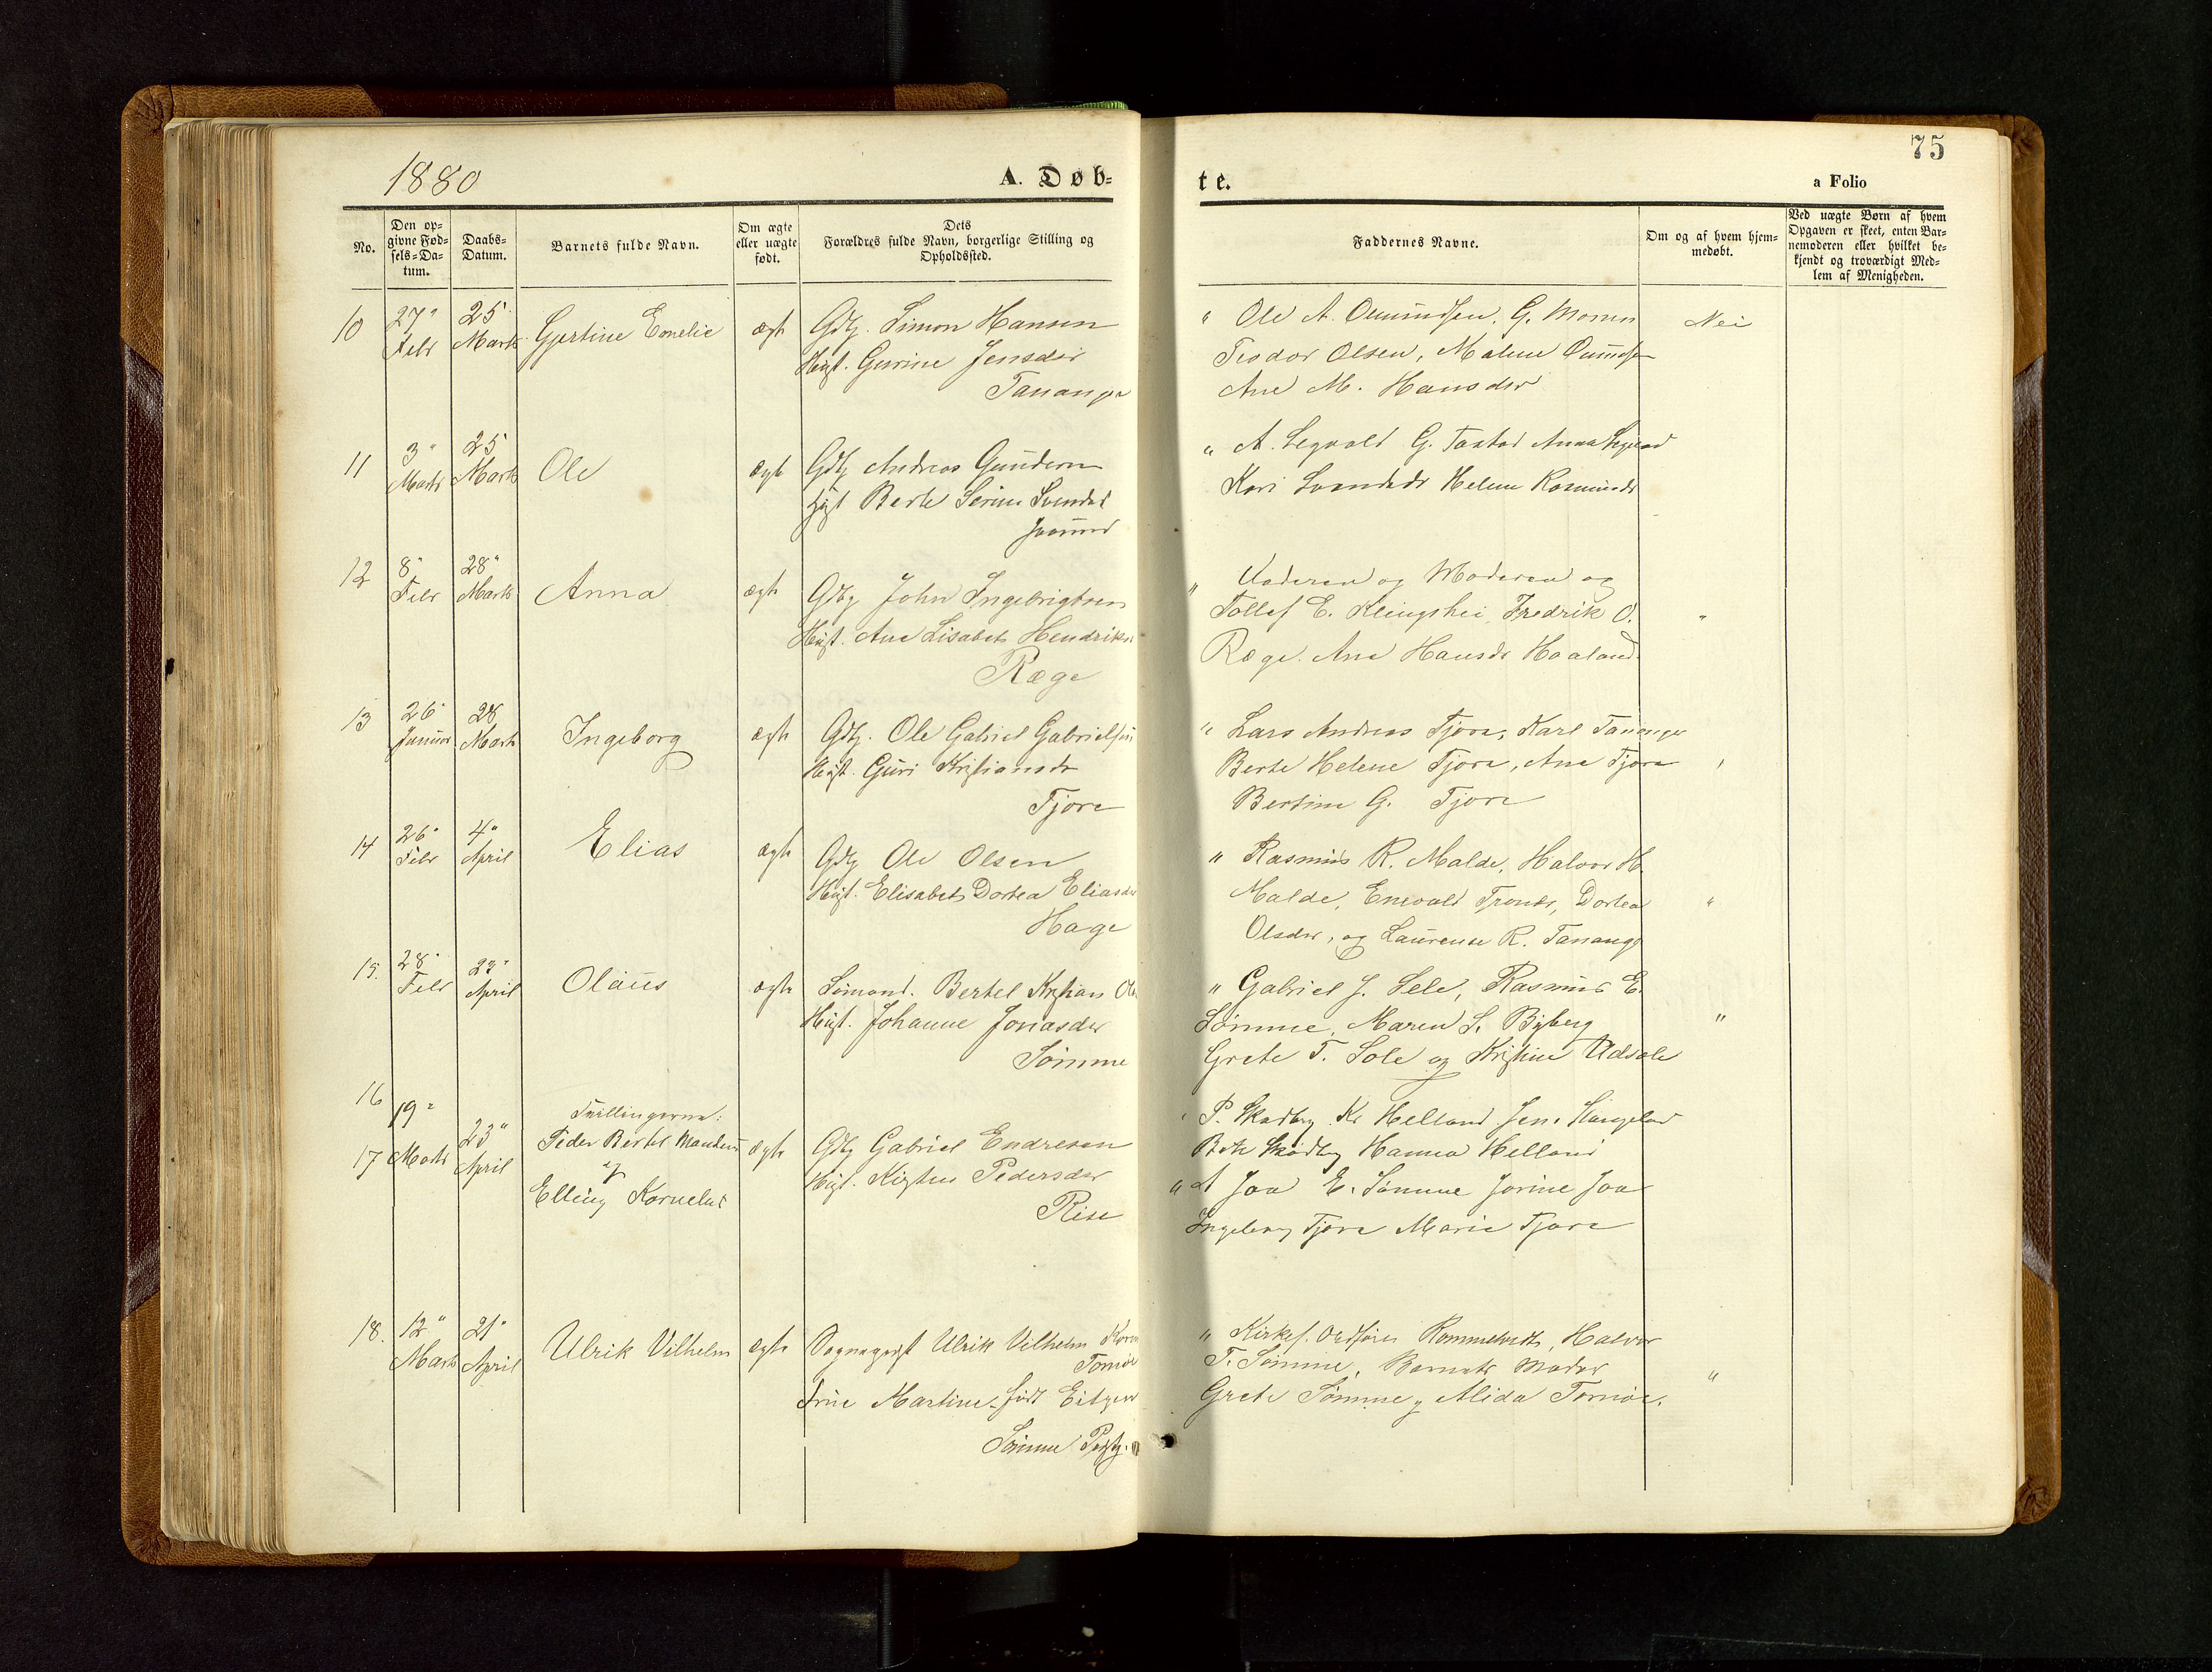 1880
A. Døb-
te.
75
a Folio
No.
Den op-
givne Fød-
sels-Da-
tum.
Daabs-
Datum.
Barnets fulde Navn.
Om ægte
eller uægte
født.
Dets
Forældres fulde Navn, borgerlige Stilling og
Opholdssted.
Faddernes Navne.
Om og af hvem hjem-
medøbt.
Ved uægte Børn af hvem
Opgaven er skeet, enten Bar-
nemoderen eller hvilket be-
kjendt og troværdigt Med-
lem af Menigheden.
10
27"
Febr
25
Marts
Gjertine Emelie
ægt
Gdbg. Simon Hansen
Hust. Gurine Jensdtr
Tananger
" Ole A. G. Monsen
Teodor Olsen, Malene
Ane M. Hansdtr
Nei
11
3"
Marts
25
Marts
Ole
ægt
Gdbg Andreas Gundersen
Hust Berte Serine Svendsd
" A. Segvald G. Tastad Anna
Kari Svendsdr Helene
12
8"
Febr
28"
Marts
Anna
ægt
Gdbg John Ingebrigtsen
Hust. Ane Lisabet Hendriks
Ræge
" Faderen og Moderen og
Tollef E. Klingshei, Fredrik O.
Ræge. Ane Hansdr Haaland.
"
13
26"
Januar
28
Marts
Ingeborg
ægt
Gdbg. Ole Gabriel Gabrielsen
Hust. Guri Kristiansdr
Tjore
" Lars Andreas Tjore, Karl Tananger
Berte Helene Tjore, Ane Tjore
Bertine G. Tjore
14
26"
Febr
4"
April
Elias
ægt
Gdbg Ole Olsen
Hust. Elisabet Dortea Eliasdr
Hage
" Rasmus R. Malde, Halvor H.
Malde, Enevald Dortea
Olsdtr, og Laurense R. Tanang
"
15.
28"
Febr
23"
April
Olaus
ægte
Sømand. Bertel Kristian Ols
Hust. Johanne Jonasdtr
Sømme
" Gabriel J. Sele, Rasmus E.
Sømme, Maren S. Byberg
Grete T. Sole og Kristine Udsole
"
16
19"
Tvillingerne:
Peder Bertel
17
Marts
23"
April
og
Elling Kornelius
ægte
Gdbg Gabriel Endresen
Hust. Kirsten Pedersdtr
Risa
P. Skadberg Kr Helland Jens Stangeland
Berte Skadberg Hanna Helland
" A Joa E. Sømme Jorine Joa
Ingeborg Tjore Marie Tjore
18.
12"
Marts
21"
April
Ulrik Vilhelm
ægte
Sogneprest Ulrik Vilhelm
Tornøe
Frue Martine født Eitzen
Sømme
" Kirkes. Ordfører Halvor
T. Sømme, Barnets Moder
Grete Sømme og Alida Tornøe.
"